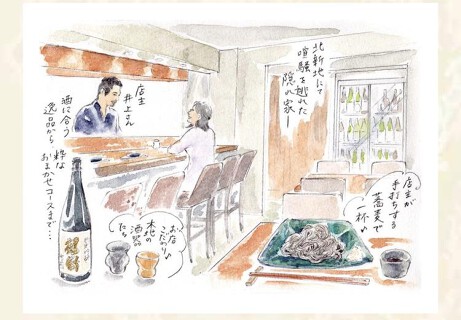 北新地にて
喧騒を逃れた
隠れ家ー
店主
井上さん
酒に合う
逸品から
粋な
おまかせコースまで…
店主が
手打ちする
蕎麦で
一杯
お店
こだわりの
酒器
たち